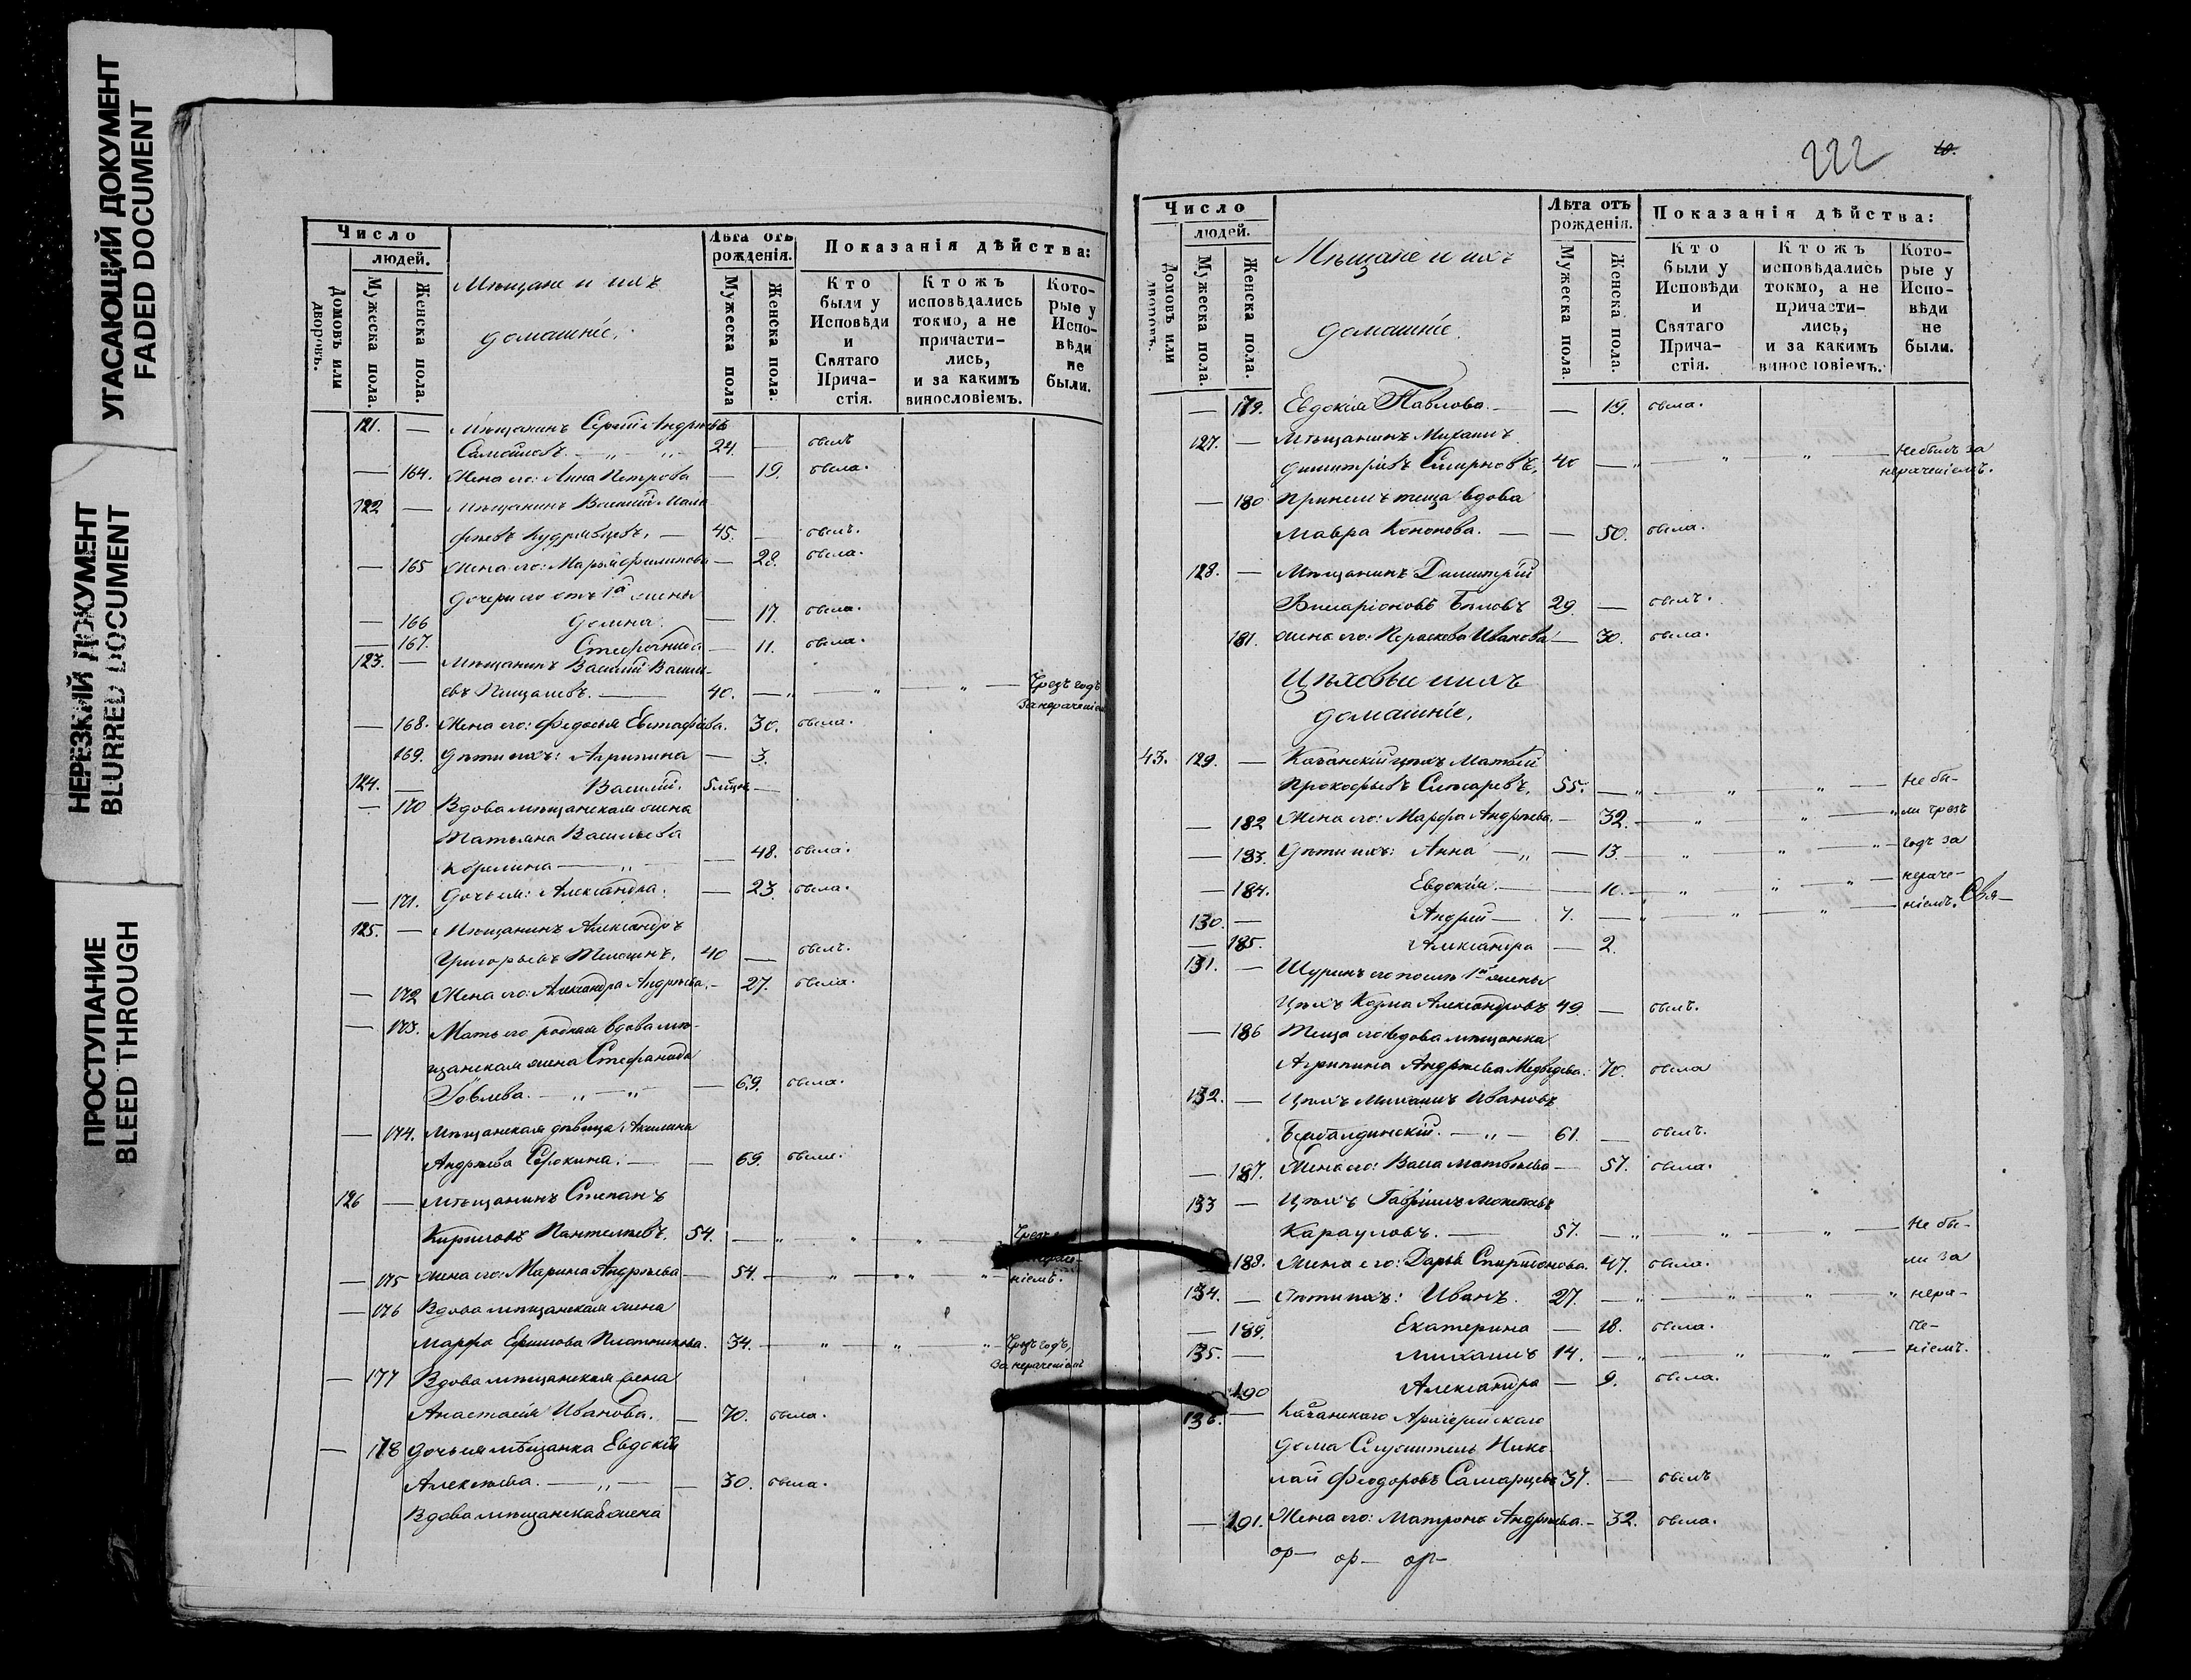 УГАСАЮЩИЙ ДОКУМЕНТ
FADED DOCUMENT
НЕРЕЗКИЙ ДОКУМЕНТ
BLURRED DOCUMENT
ПРОСТУПАНИЕ
BLEED THROUGH
Число
людей.
Домовъ или дворовъ.
Мужеска пола.
Женска пола.
Мѣщане и ихъ
домашніе.
Лѣта отъ рожденія.
Мужеска пола
Женска пола.
Показанія дѣйства:
Кто были у Исповѣди и Святаго Причастія.
Ктожъ исповѣдались токмо, а не причастились, и за какимъ винословіемъ.
Которые у Исповѣди не были.
121. — Мѣщанинъ Сергій Андреевъ
Самойловъ — „ — „ 24. — былъ
— 164. Жена его: Анна Петрова — 19. была.
122 — Мѣщанинъ Василій Мала-
фѣевъ Кудрявцевъ. — 45. — былъ.
— 165 Жена его: Марья Филипова — 28. была.
Дочери его отъ 1й жены
— 166 Домна. — 17. была.
— 167. Стефанида — 11. была.
123. — Мѣщанинъ Василій Василь-
евъ Пищалевъ. — 40. — „ — „ — „ — Чрезъ годъ
за нераченіем
— 168. Жена его: Федосья Евстафьева. 30. была.
169. Дѣти ихъ: Агрипина — 3.
124. — Василій. 5 мѣцъ —
— 170 Вдова мѣщанская жена
Татьяна Васильева
Корелина — „ — 48. была.
— 171. Дочь ея: Александра. — 23. была.
125. — Мѣщанинъ Александръ
Григорьевъ Телегинъ. 40 — былъ.
— 172 Жена его: Александра Андреева. — 27. была.
— 173. Мать его родная вдова мѣ-
щанская жена Стефанида
Іовлева. — „ — „ — 69. была.
— 174. Мѣщанская дѣвица: Акилина
Андреева Сорокина. — 69. была.
126 — Мѣщанинъ Степанъ
Кириловъ Пантелѣевъ. 54. — „ — „ — „ — Чрезъ
— 175 жена его: Марина Андреева — 54. — „ — „ — „ —
ніемъ.
— 176 Вдова мѣщанская жена
Марфа Ефимова Плотникова. 34. — „ — „ — „ — Чрезъ годъ,
за нераченіем
— 177 Вдова мѣщанская жена
Анастасія Иванова. — 70. была.
— 178 Дочь ея мѣщанка Евдокія
Алексѣева. — „ — 30. была.
Вдова мѣщанская жена
222 10.
Число
людей.
Домовъ или дворовъ.
Мужеска пола.
Женска пола.
Мѣщане и ихъ
домашніе.
Лѣта отъ рожденія.
Мужеска пола.
Женска пола.
Показанія дѣйства:
Кто были у Исповѣди и Святаго Причастія.
Ктожъ исповѣдались токмо, а не причастились, и за какимъ винословіемъ.
Которые у Исповѣди не были.
— 179. Евдокія Павлова. — 19. была.
127. — Мѣщанинъ Михаилъ
Димитріевъ Смирновъ, 40 — „ — „ — „ — Небылъ за
нераченіемъ.
— 180 При немъ теща вдова
Мавра Кононова. — 50. была.
128. — Мѣщанинъ Димитрій
Висаріоновъ Бѣловъ 29. — былъ.
181. Жена его: Параскева Иванова — 30. была.
Цѣховые и ихъ
домашніе.
43. 129. — Казанскій цѣхъ Матвѣй
Прокофьевъ Слѣсаревъ. 55. — „ — „ — „ — Не бы-
— 182 Жена его: Марфа Андреева. — 32. — „ — „ — „ ли чрезъ
— 183. Дѣти ихъ: Анна — „ — 13. — „ — „ — „ — годъ за
— 184. Евдокія — 10. — „ — „ — „ — нераче-
130. — Андрей — 7. — „ — „ — „ — ніемъ. Свя—
— 185. Александра — 2.
131. — Шуринъ его послѣ 1й жены
Цѣхъ Козма Александровъ 49. — былъ.
— 186 Теща его вдова мѣщанка
Агрипина Андреева Медведева. 70. была
132. — Цѣхъ Михаилъ Ивановъ
— „ — 61. — былъ.
— 187. Жена его: Васса Матвѣева — 57. была.
133 — Цѣхъ Гавріилъ
Карауловъ. — 57. — „ — „ — „ — Не бы-
188. Жена его: Дарья Спиридонова. 47. была. ли за
134. — Дѣти ихъ: Иванъ. 27. — „ — „ — „ — нера-
— 189. Екатерина — 18. была. че-
135. — Михаилъ 14. — „ — „ — „ — ніемъ.
190 Александра — 9. была.
136. — Казанскаго Архіерейскаго
дома Служитель Нико-
лай Феодоровъ Самарцевъ 37. — былъ
— 191. Жена его: Матрона Андреева. — 32. была.